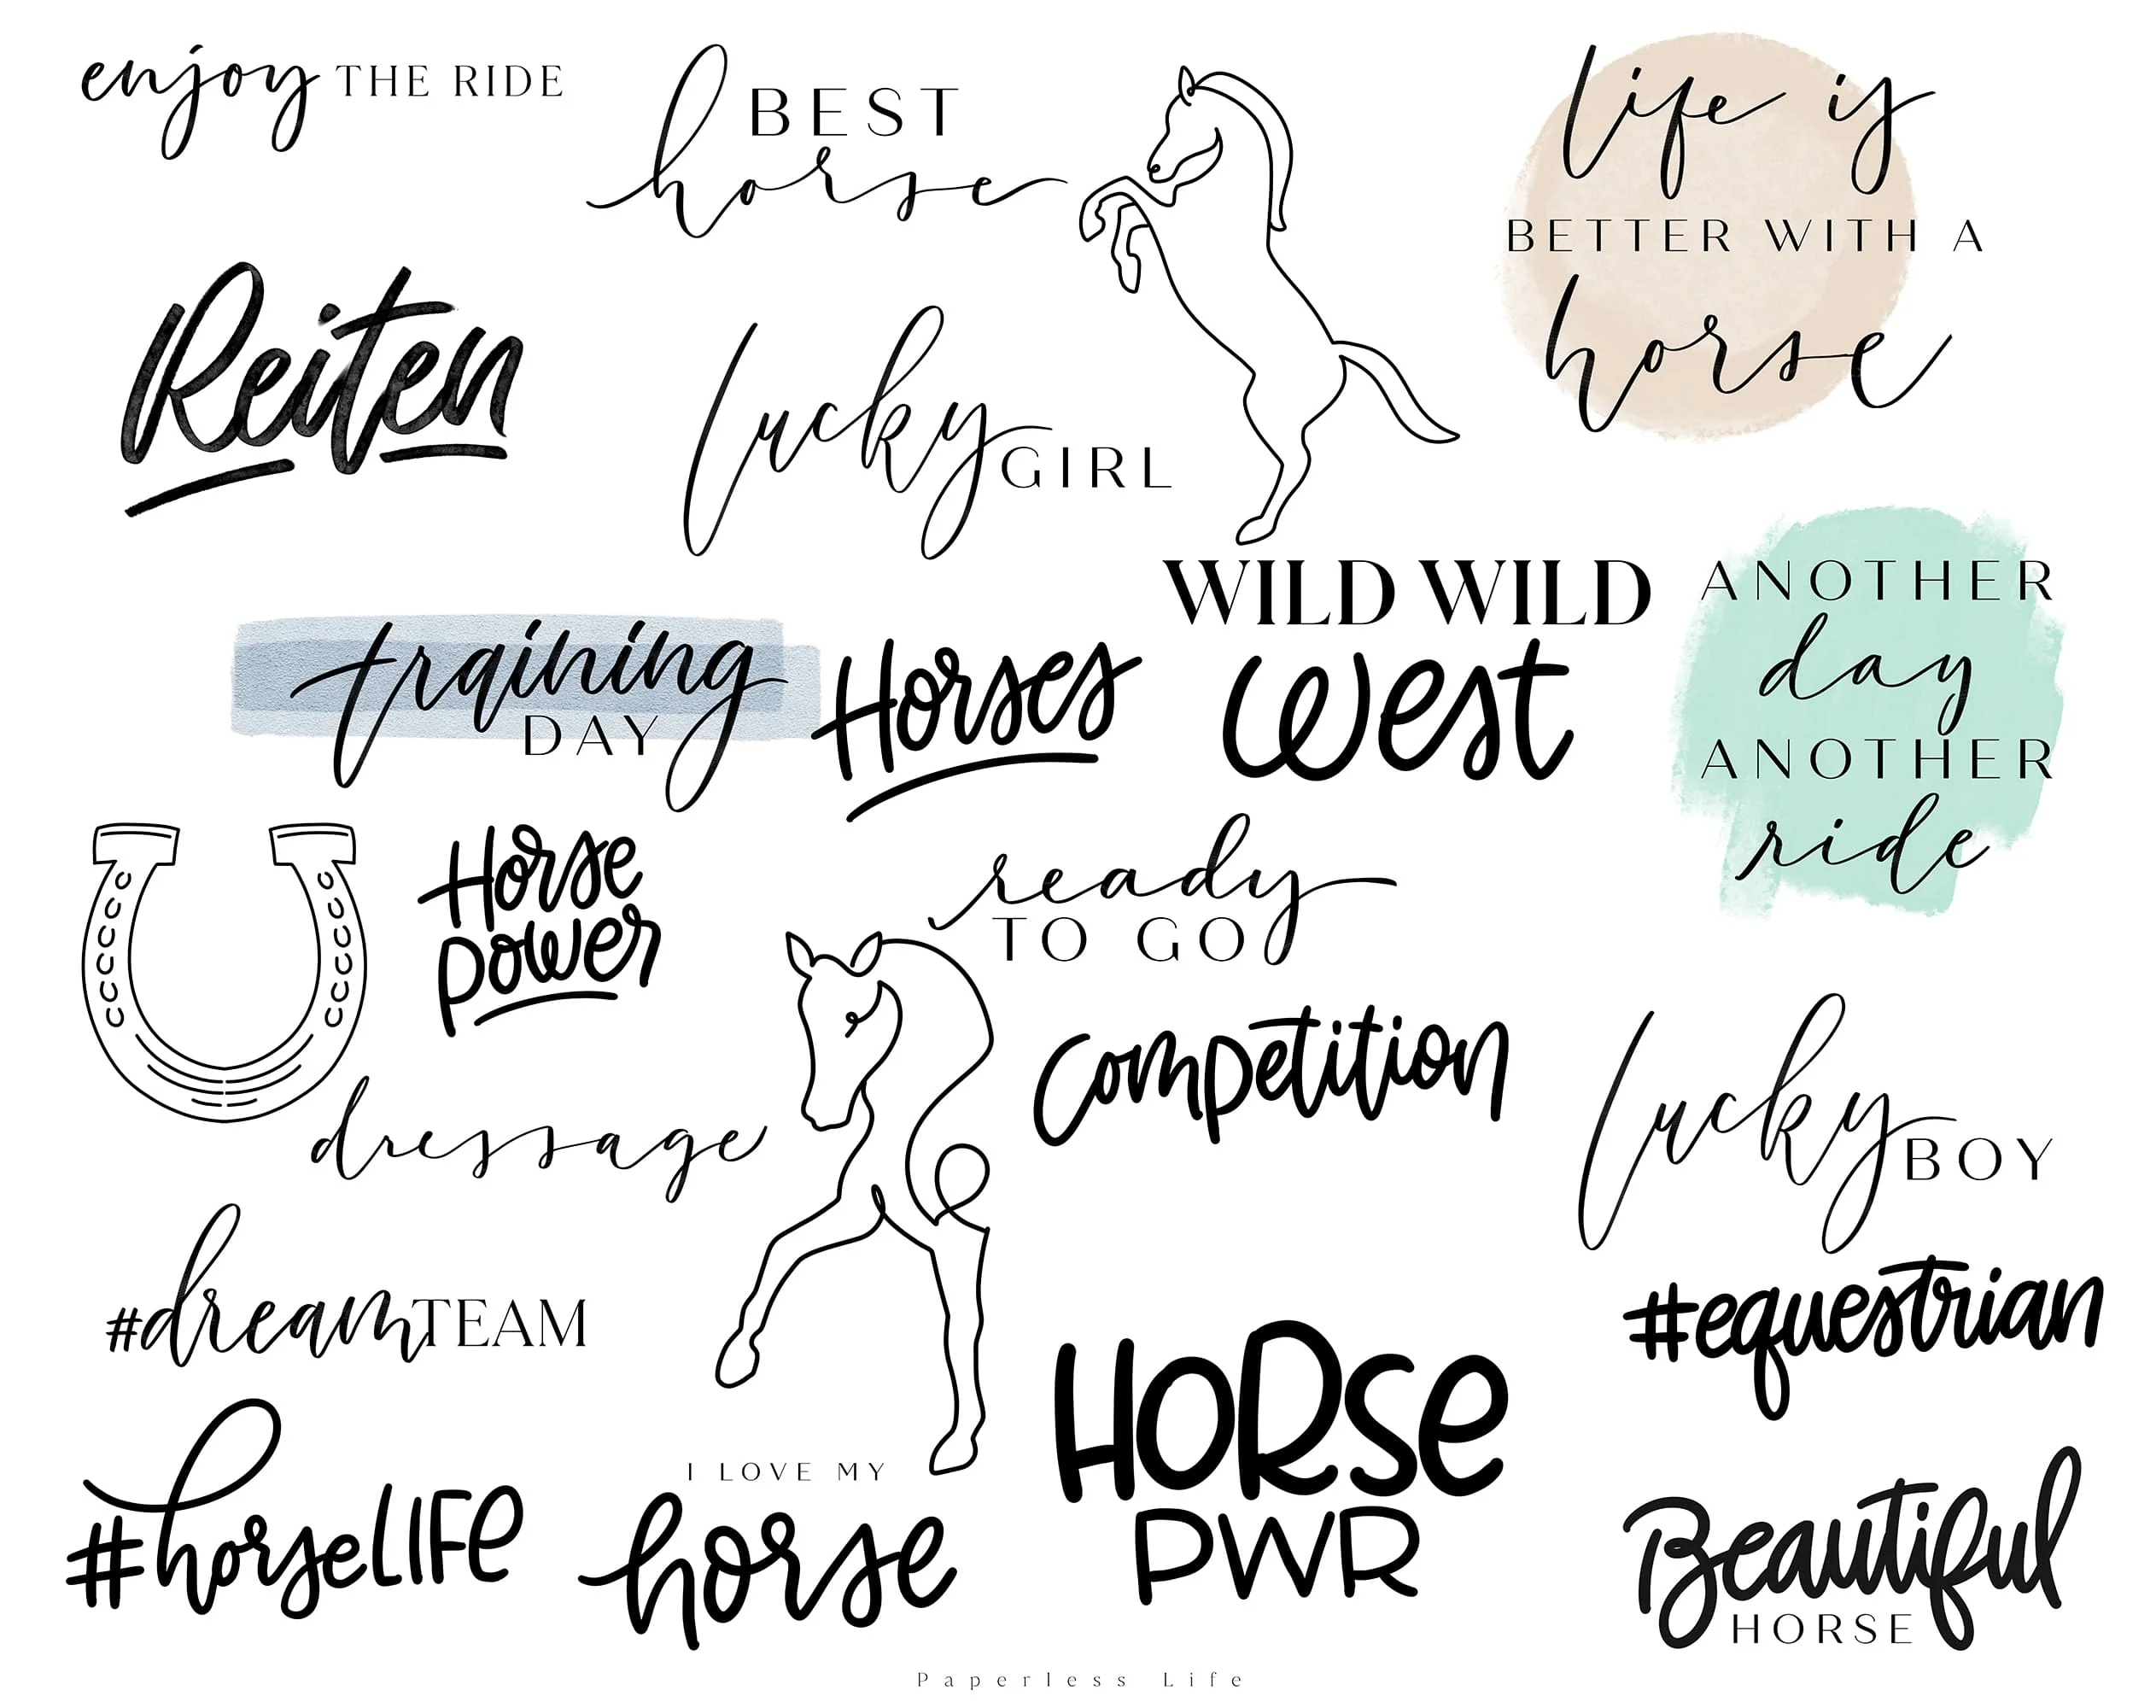 enjoy THE RIDE
BEST
horse
life is
BETTER WITH A
horse
Reiten
lucky GIRL
WILD WILD
West
ANOTHER
day
ANOTHER
ride
training
DAY
Horses
Horse
power
ready
TO GO
competition
dressage
lucky BOY
#dreamTEAM
#equestrian
HORSe
PWR
#horseLIFe
I LOVE MY
horse
Beautiful
HORSE
Paperless Life